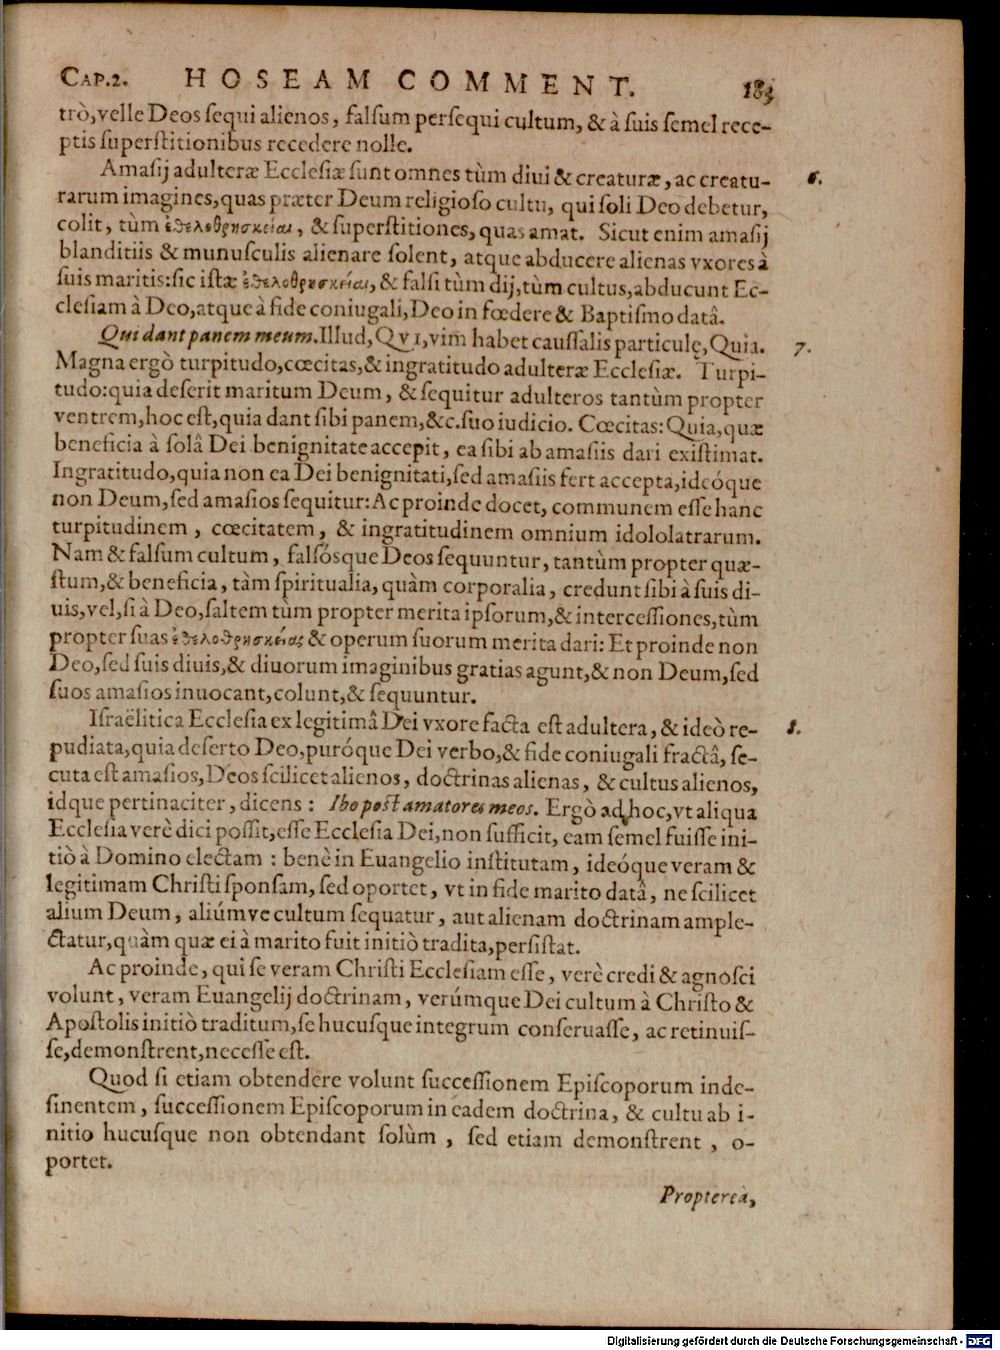 CAP.2. HOSEAM COMMENT. 183
trò, velle Deos sequi alienos, falsum persequi cultum, & à suis semel rece-
ptis superstitionibus recedere nolle.
Amasij adulteræ Ecclesiæ sunt omnes tùm diui & creaturæ, ac creatu- 6.
rarum imagines, quas præter Deum religioso cultu, qui soli Deo debetur,
colit, tùm ἐθελοθρησκείαι, & superstitiones, quas amat. Sicut enim amasij
blanditiis & munusculis alienare solent, atque abducere alienas vxores à
suis maritis: sic istæ ἐθελοθρησκείαι, & falsi tùm dij, tùm cultus, abducunt Ec-
clesiam à Deo, atque à fide coniugali, Deo in fœdere & Baptismo datâ.
Qui dant panem meum. Illud, QVI, vim habet caussalis particulę, Quia. 7.
Magna ergò turpitudo, cœcitas, & ingratitudo adulteræ Ecclesiæ. Turpi-
tudo: quia deserit maritum Deum, & sequitur adulteros tantùm propter
ventrem, hoc est, quia dant sibi panem, &c. suo iudicio. Cœcitas: Quia, quæ
beneficia à solâ Dei benignitate accepit, ea sibi ab amasiis dari existimat.
Ingratitudo, quia non ea Dei benignitati, sed amasiis fert accepta, ideóque
non Deum, sed amasios sequitur: Ac proinde docet, communem esse hanc
turpitudinem, cœcitatem, & ingratitudinem omnium idololatrarum.
Nam & falsum cultum, falsósque Deos sequuntur, tantùm propter quæ-
stum, & beneficia, tàm spiritualia, quàm corporalia, credunt sibi à suis di-
uis, vel, si à Deo, saltem tùm propter merita ipsorum, & intercessiones, tùm
propter suas ἐθελοθρησκείας & operum suorum merita dari: Et proinde non
Deo, sed suis diuis, & diuorum imaginibus gratias agunt, & non Deum, sed
suos amasios inuocant, colunt, & sequuntur.
Israëlitica Ecclesia ex legitimâ Dei vxore facta est adultera, & ideò re- 8.
pudiata, quia deserto Deo, puróque Dei verbo, & fide coniugali fractâ, se-
cuta est amasios, Deos scilicet alienos, doctrinas alienas, & cultus alienos,
idque pertinaciter, dicens: Ibo post amatores meos. Ergò ad hoc, vt aliqua
Ecclesia verè dici possit, esse Ecclesia Dei, non sufficit, eam semel fuisse ini-
tiò à Domino electam: benè in Euangelio institutam, ideóque veram &
legitimam Christi sponsam, sed oportet, vt in fide marito datâ, ne scilicet
alium Deum, aliúmve cultum sequatur, aut alienam doctrinam ample-
ctatur, quàm quæ ei à marito fuit initiò tradita, persistat.
Ac proinde, qui se veram Christi Ecclesiam esse, verè credi & agnosci
volunt, veram Euangelij doctrinam, verúmque Dei cultum à Christo &
Apostolis initiò traditum, se hucusque integrum conseruasse, ac retinuis-
se, demonstrent, necesse est.
Quod si etiam obtendere volunt successionem Episcoporum inde-
sinentem, successionem Episcoporum in eadem doctrina, & cultu ab i-
nitio hucusque non obtendant solùm, sed etiam demonstrent, o-
portet.
Proptereà,
Digitalisierung gefördert durch die Deutsche Forschungsgemeinschaft - DFG